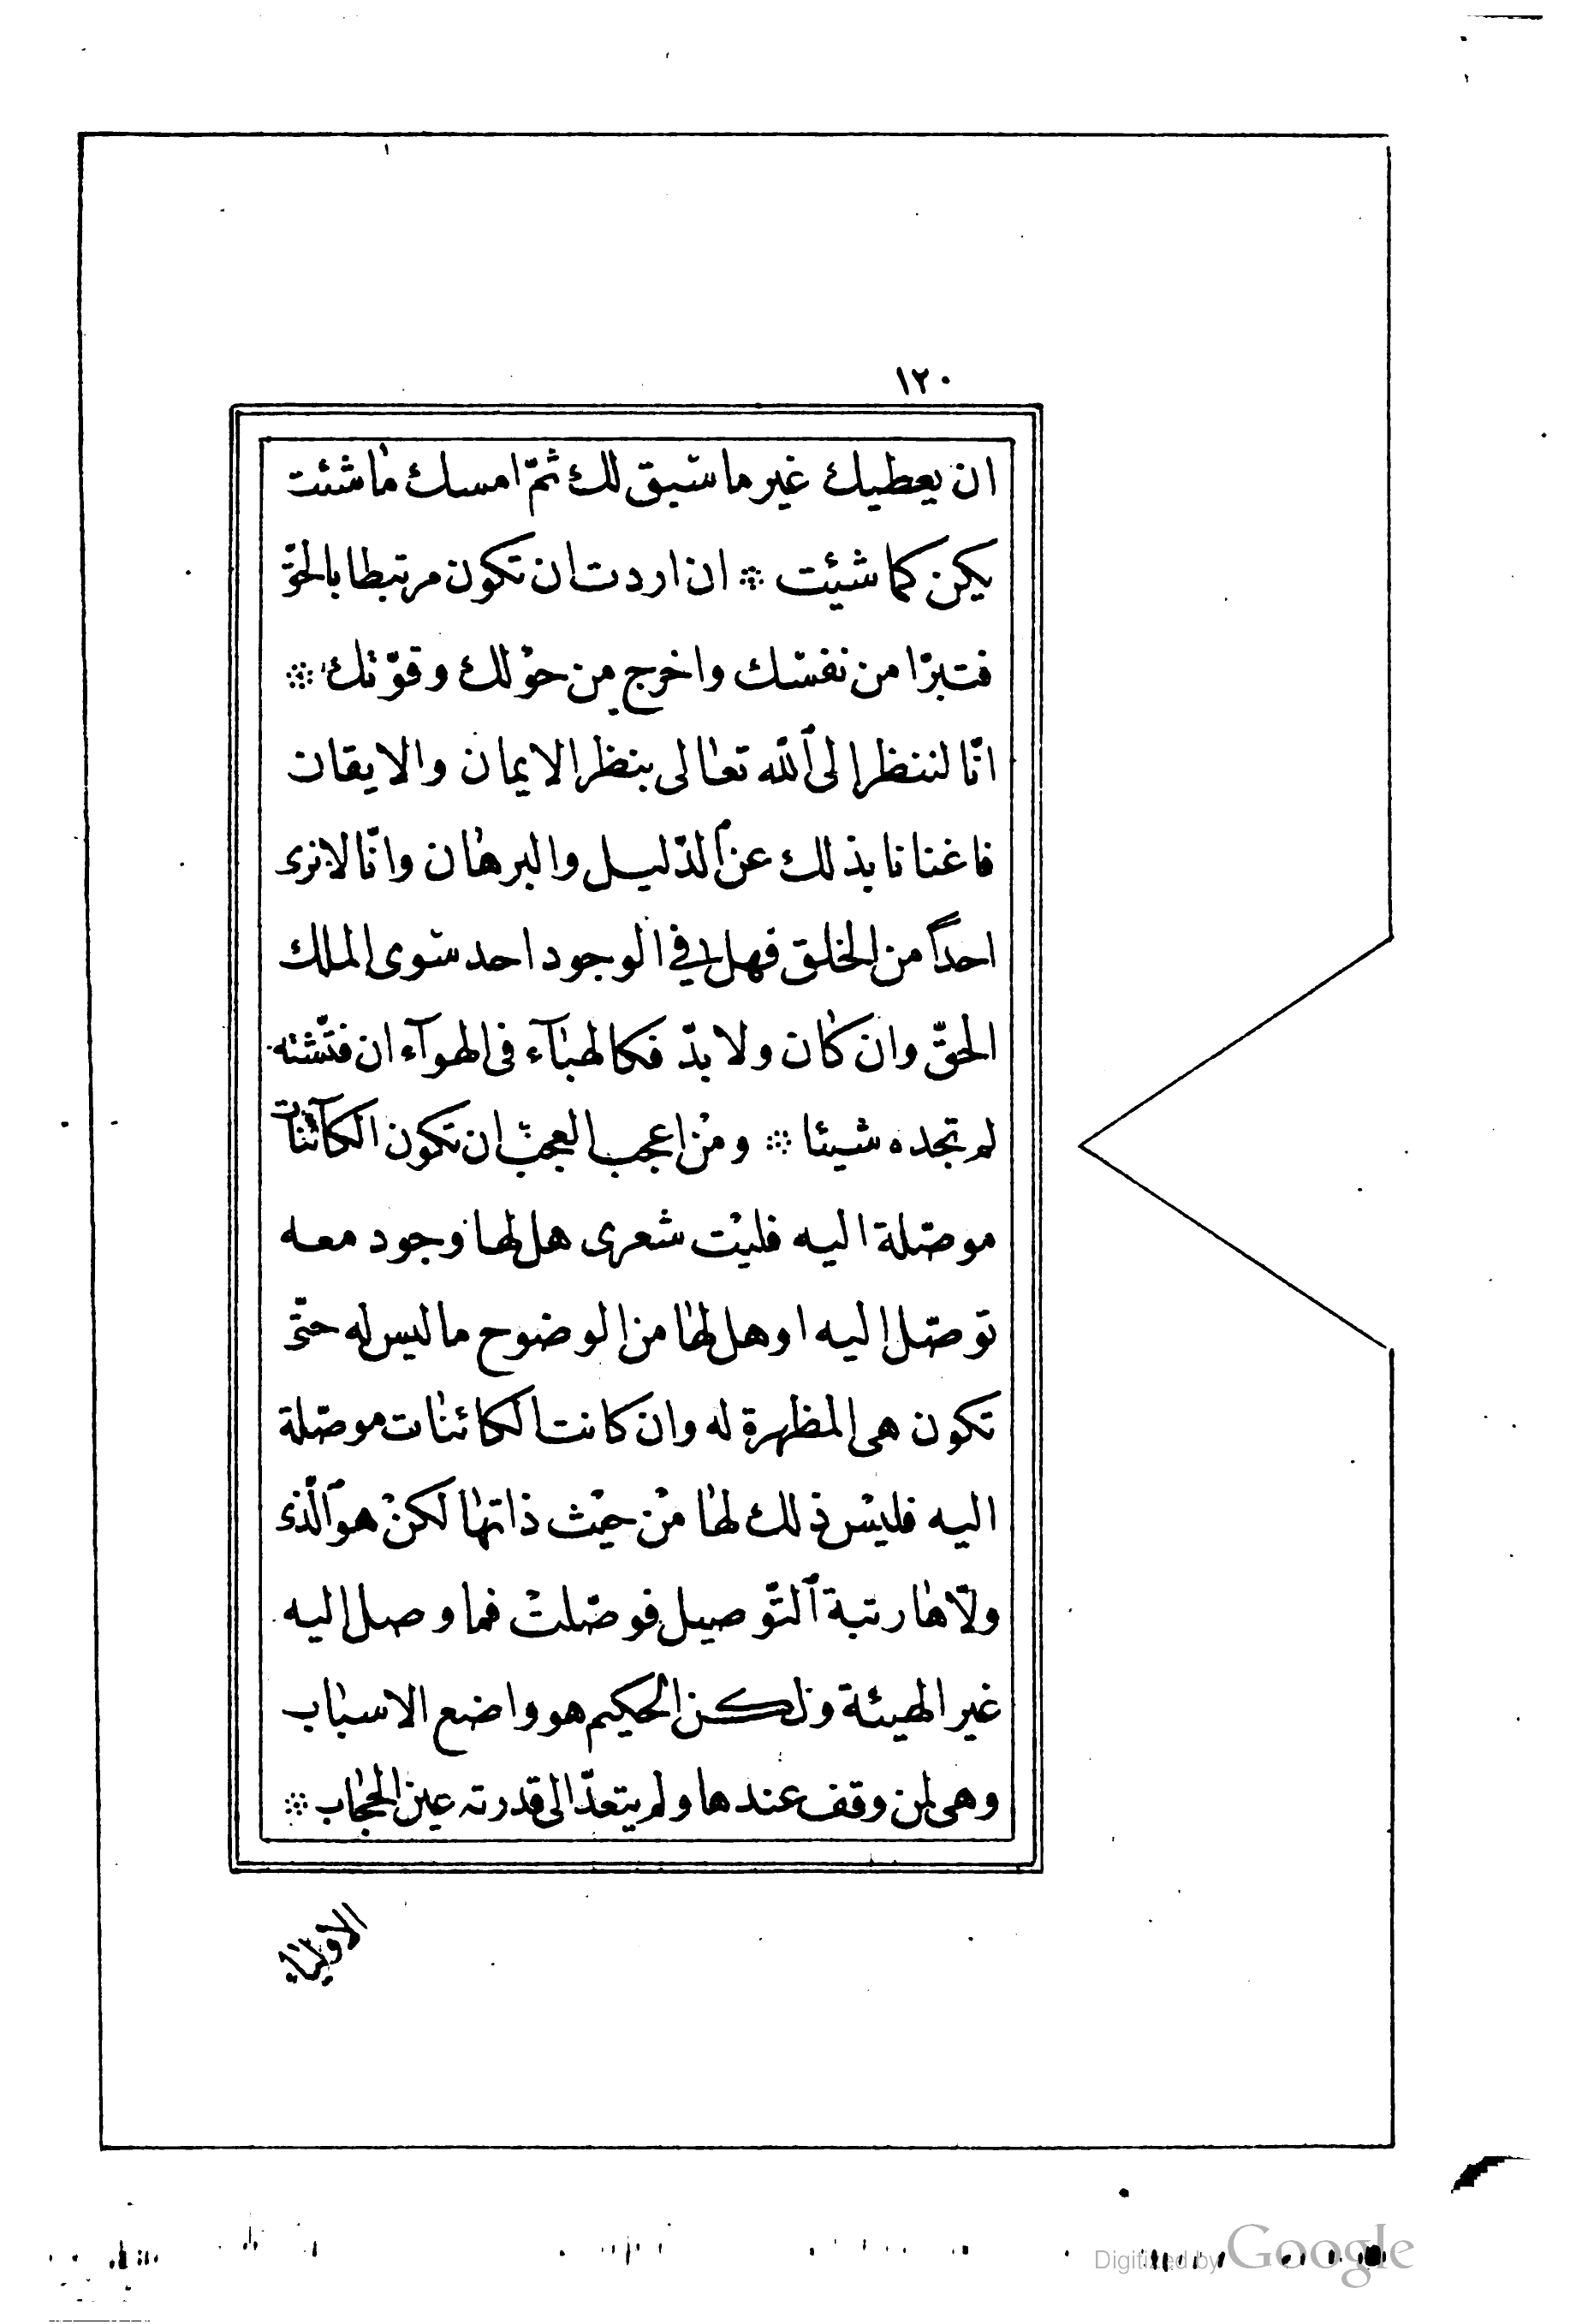 ١٢٠
ان يعطيك غير ما سبق لك ثمّ امسك ما شئت
يكن كما شيئت ۞ ان اردت ان تكون مرتبطا بالحقّ
فتبرّا من نفسك واخرج من حوْلك وقوّتك ۞
انّا لننظر الى ٱللّه تعالى بنظر الايمان والايقان
فاغنانا بذلك عن ٱلدّليل والبرهان وانّا لا نرى
احدًا من الخلق فهل فى الوجود احد سوى الملك
الحقّ وان كان ولا بدّ فكالهبآء فى الهوآء ان فتّشته
لم تجده شيئا ۞ ومنْ اعجب العجب ان تكون الكآئنات
موصّلة اليه فليْت شعرى هل لها وجود معه
توصّل اليه او هل لها من الوضوح ما ليس له حتّى
تكون هى المظهرة له وان كانت الكائنات موصّلة
اليه فليْس ذلك لها منْ حيْث ذاتها لكنْ هو ٱلّذى
ولّاها رتبة ٱلتّوصيل فوصّلتْ فما وصل اليه
غير الهيئة ولكن الحكيم هو واضع الاسباب
وهى لمن وقف عندها ولم يتعدّ الى قدرته عين الحجاب ۞
الاولياء
Digitized by Google